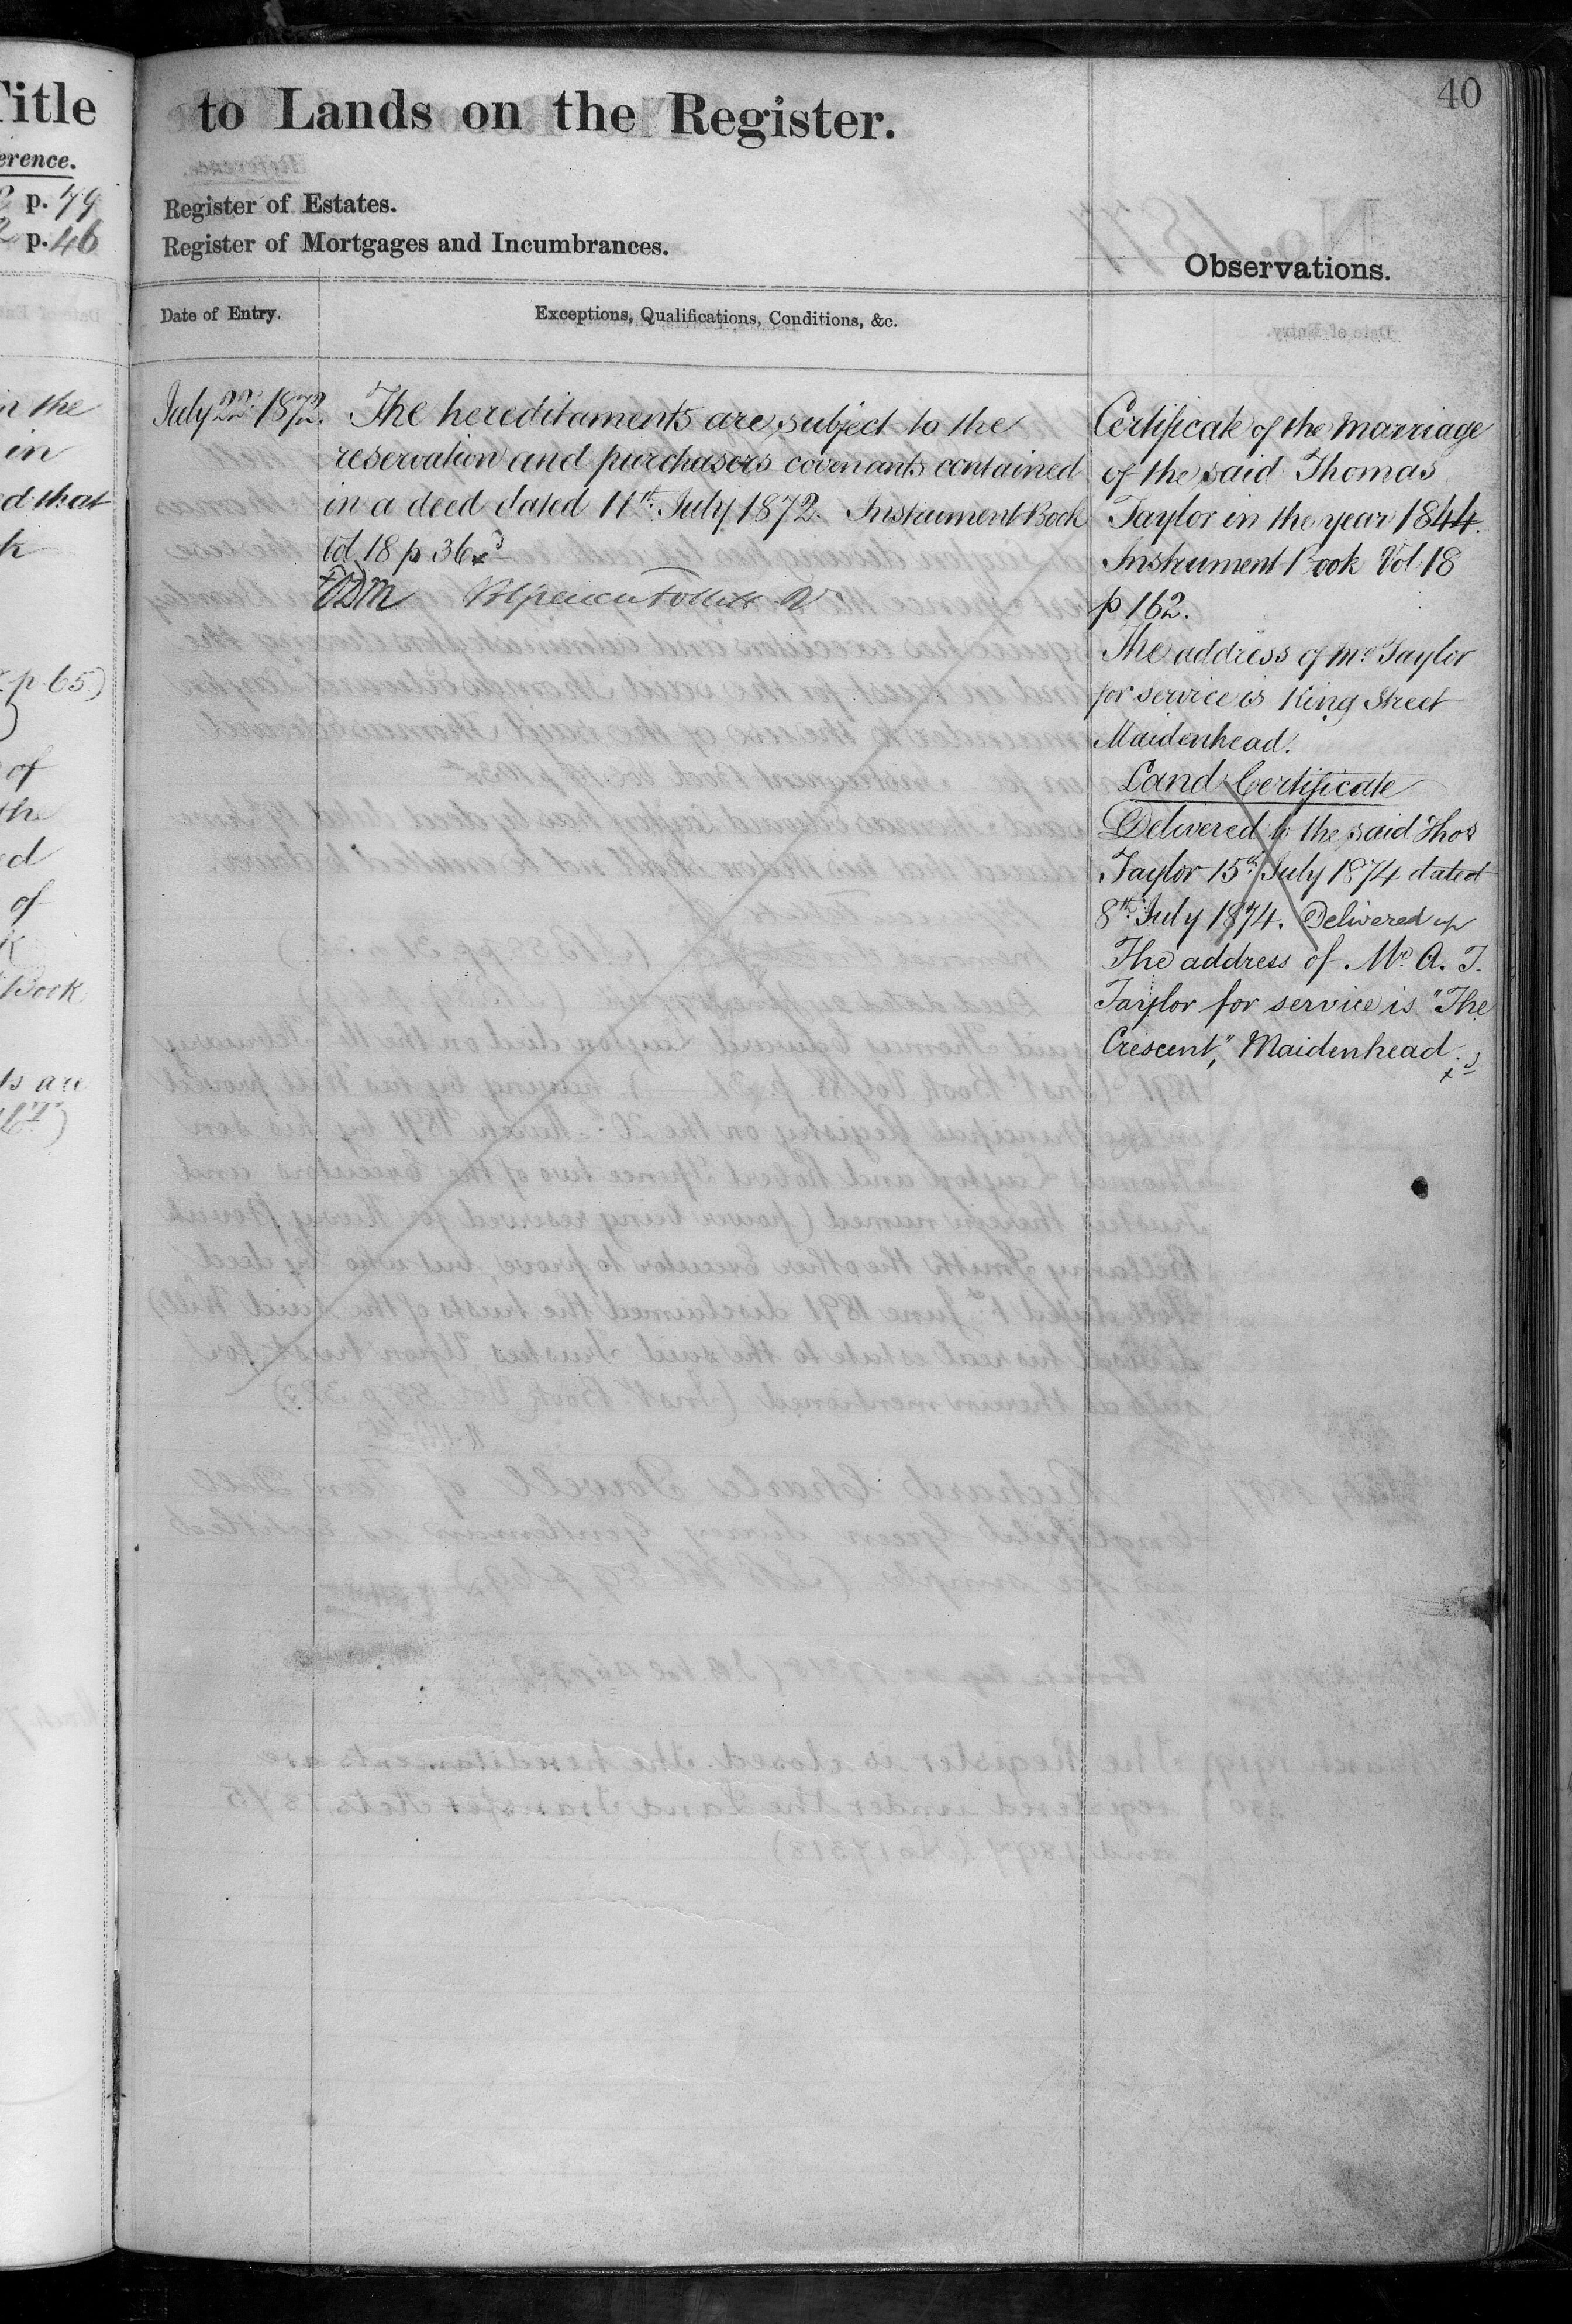 Title
erence.
p. 79
p. 46
n the
in
d that
p. 65.)
of
the
ed
of
Book
ts are
40
to Lands on the Register.
Register of Estates.
Register of Mortgages and Incumbrances.
Observations.
Date of Entry.
Exceptions, Qualifications, Conditions, &c.
July 22d 1872.
The hereditaments are subject to the
reservation and purchasers covenants contained
in a deed dated 11th July 1872. Instrument Book
Vol 18 p 36
Certificate of the Marriage
of the said Thomas
Taylor in the year 1844.
Instrument Book Vol 18
p 162.
The address of Mr Taylor
for service is King Street
Maidenhead.
Land Certificate
Delivered to the said Thos
Taylor 15th July 1874 dated
8th July 1874. Delivered up
The address of Mr A. T.
Taylor for service is "The
Crescent", Maidenhead.